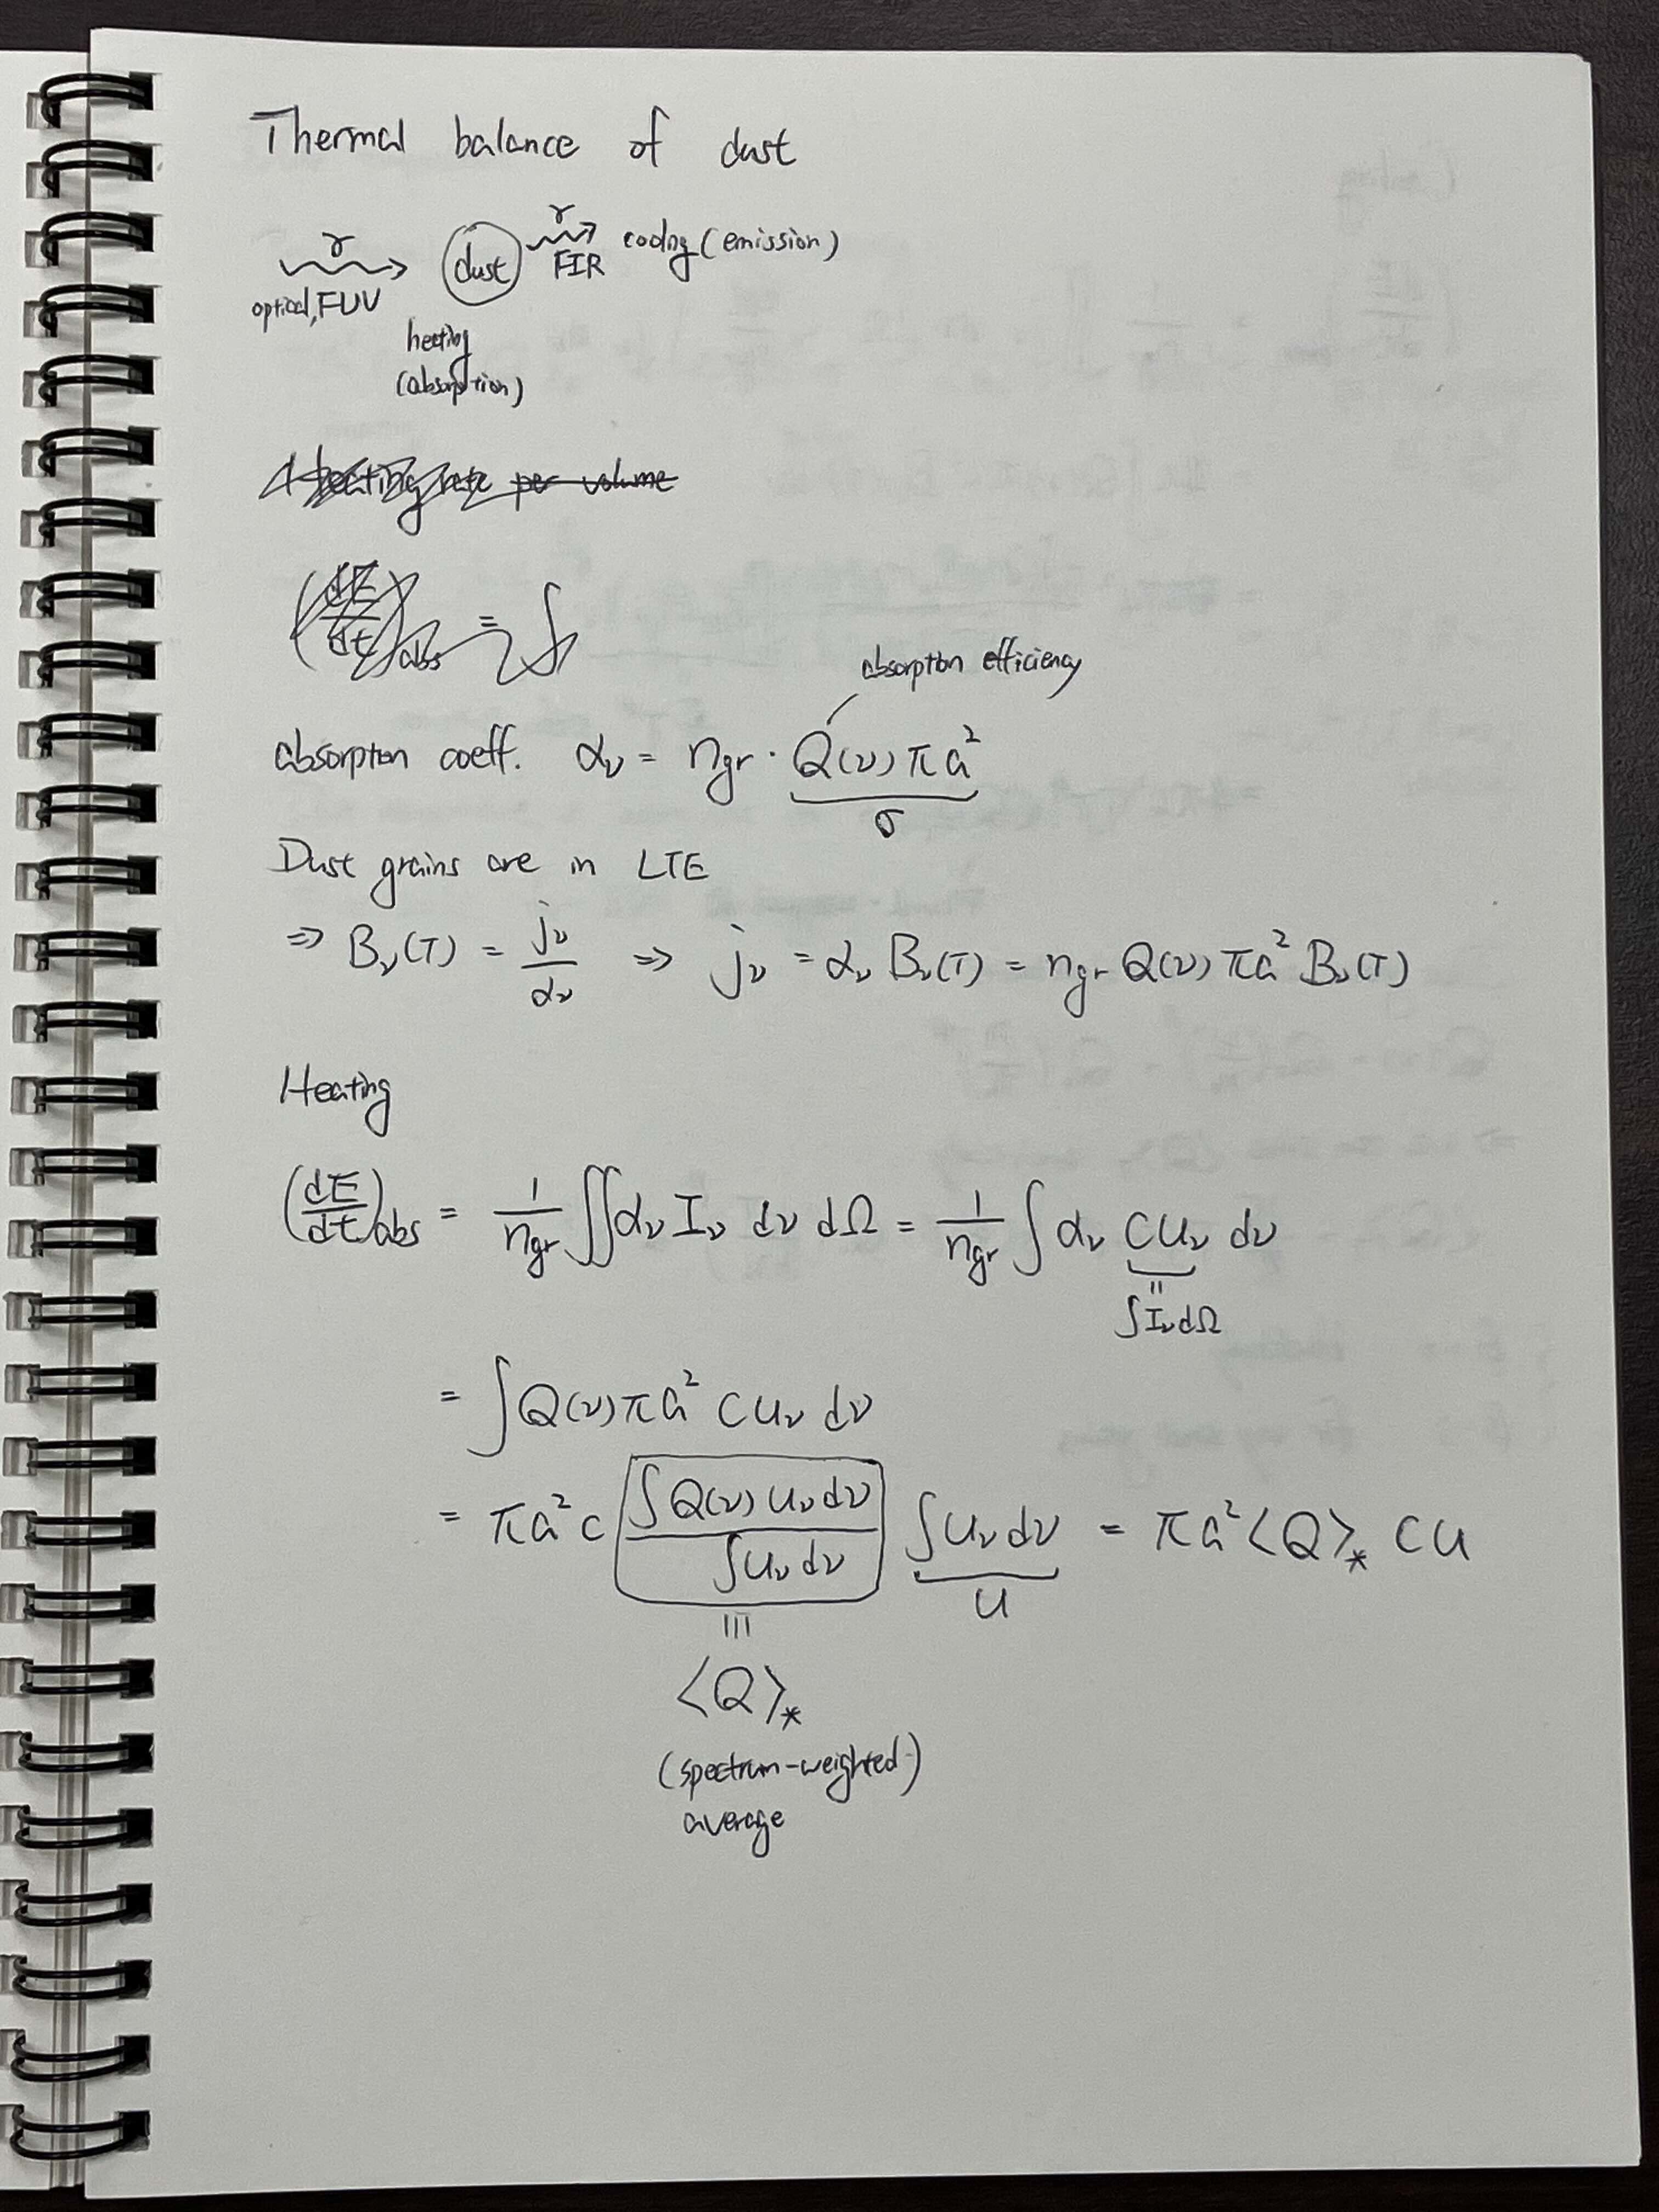 Thermal balance of dust
γ γ
optical, FUV dust FIR cooling (emission)
heating
(absorption)
Heating rate per volume
(dE/dt)abs = ∫
absorption efficiency
absorption coeff. αν = ngr · Q(ν) πa²
σ
Dust grains are in LTE
⇒ Bν(T) = jν/αν ⇒ jν = αν Bν(T) = ngr Q(ν) πa² Bν(T)
Heating
(dE/dt)abs = 1/ngr ∬ αν Iν dν dΩ = 1/ngr ∫ αν cuν dν
=
∫Iν dΩ
= ∫ Q(ν) πa² cuν dν
= πa² c ∫Q(ν) uν dν / ∫uν dν ∫uν dν = πa² ⟨Q⟩* cu
≡ u
⟨Q⟩*
(spectrum-weighted)
average